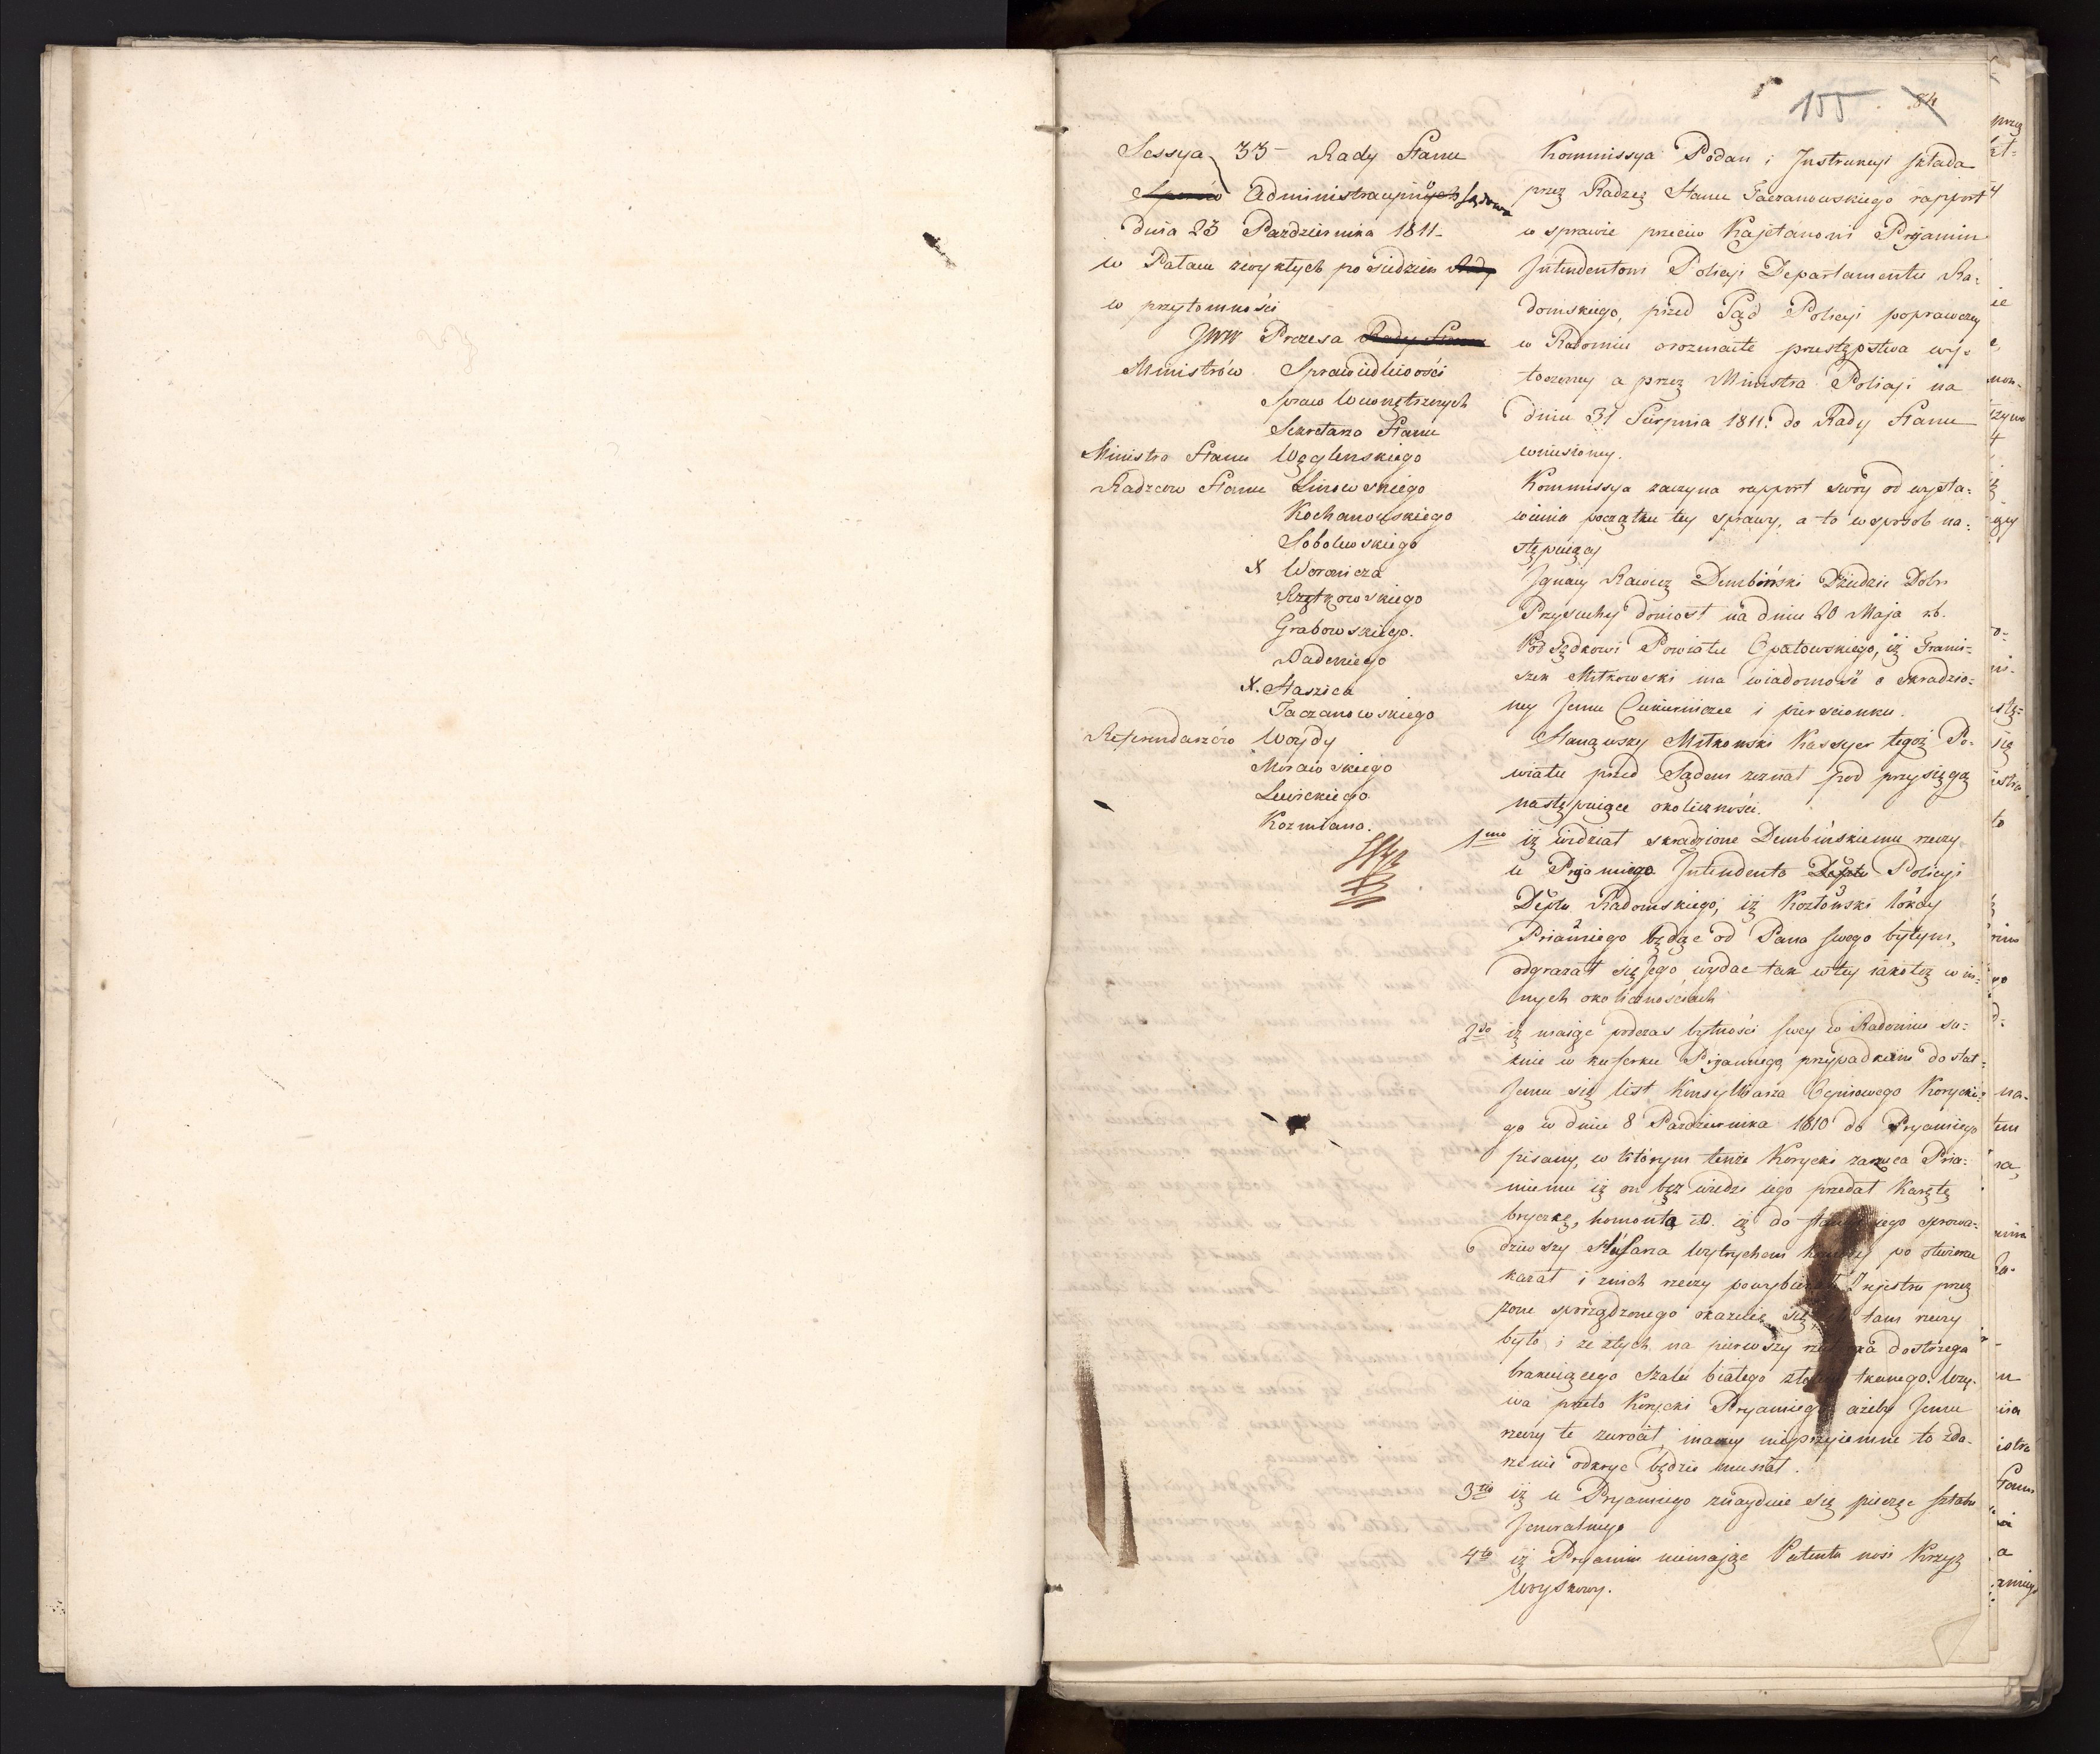 155. 84
Sessya 33 Rady Stanu
Sporów Administracyjnych Sądowa
dnia 23 Pazdziernika 1811
w Pałacu zwykłych posiedzien Rady
w przytomności
JWW Prezesa Rady Stanu
Ministrów Sprawiedliwości
Spraw Wewnętrznych
Sekretarza Stanu
Ministra Stanu Węglenskiego
Radzców Stanu Linowskiego
Kochanowskiego
Sobolewskiego
X Woronicza
Rzętkowskiego
Grabowskiego.
Badeniego
X. Staszica
Taczanowskiego
Referendarzów Woydy
Morawskiego
Lewickiego
Kozmiana.
Kommissya Podan i Instrukcyi składa
przez Radzcę Stanu Taczanowskiego rapport
w sprawie przeciw Kajetanowi Pryamin
Intendentowi Policyi Departamentu Ra-
domskiego, przed Sąd Policyi poprawczey
w Radomiu o rozmaite przestępstwa wy-
toczoney a przez Ministra Policyi na
dniu 31 Sierpnia 1811. do Rady Stanu
wniesioney.
Kommissya zaczyna rapport swóy od wysta-
wienia początku tey sprawy, a to w sposób na-
stępuiący
Ignacy Rawicz Dembiński Dziedzic Dobr
Przysuchy doniosł na dniu 20 Maja rb.
Podsędkowi Powiatu Opatowskiego, iż Franci-
szek Mitkowski ma wiadomość o skradzio-
ney Jemu Cukierniczce i pierscionku.
Stanąwszy Mitkowski Kassyer tegoż Po-
wiatu przed Sądem zeznał pod przysięgą
następuiące okoliczności.
1mo iż widział skradzione Dembińskiemu rzeczy
u Pryamiego Intendenta Deptu Policyi
Deptu Radomskiego, iż Kozłowski lokay
Priamiego będąc od Pana swego bitym,
odgrazał się Jego wydac tak w tey iako też w in-
nych okolicznościach
2do iż maiąc podczas bytności swey w Radomiu su-
knie w kuferku Pryamiego, przypadkiem dostał
Jemu się list Konsyliarza Ogniowego Korycki-
go w dniu 8 Pazdziernika 1810 do Pryamiego
pisany, w którym tenże Korycki zarzuca Pria-
miemu iż on bez wiedzy iego przedał Karętę
bryczkę, homonta itd. iż do iego sprowa-
dziwszy slusarza wytrychem po otwierac
kazał i z nich rzeczy powybierał Z rejestru przez
zonę sporządzonego okazuie się tam rzeczy
było i ze złych na pierwszy rzut oka dostrzega
brakuiącego szalu białego tkanego. Wzy-
wa przeto Korycki Pryamiego ażeby Jemu
rzeczy te zwrócił, inaczey nieprzyiemne to zda-
rzenie odkryc będzie musiał.
3tio iż u Pryamiego znayduie się pieczęc sztabu
Jeneralnego
4to iż Pryamin niemając Patentu nosi Krzyż
Woyskowy.